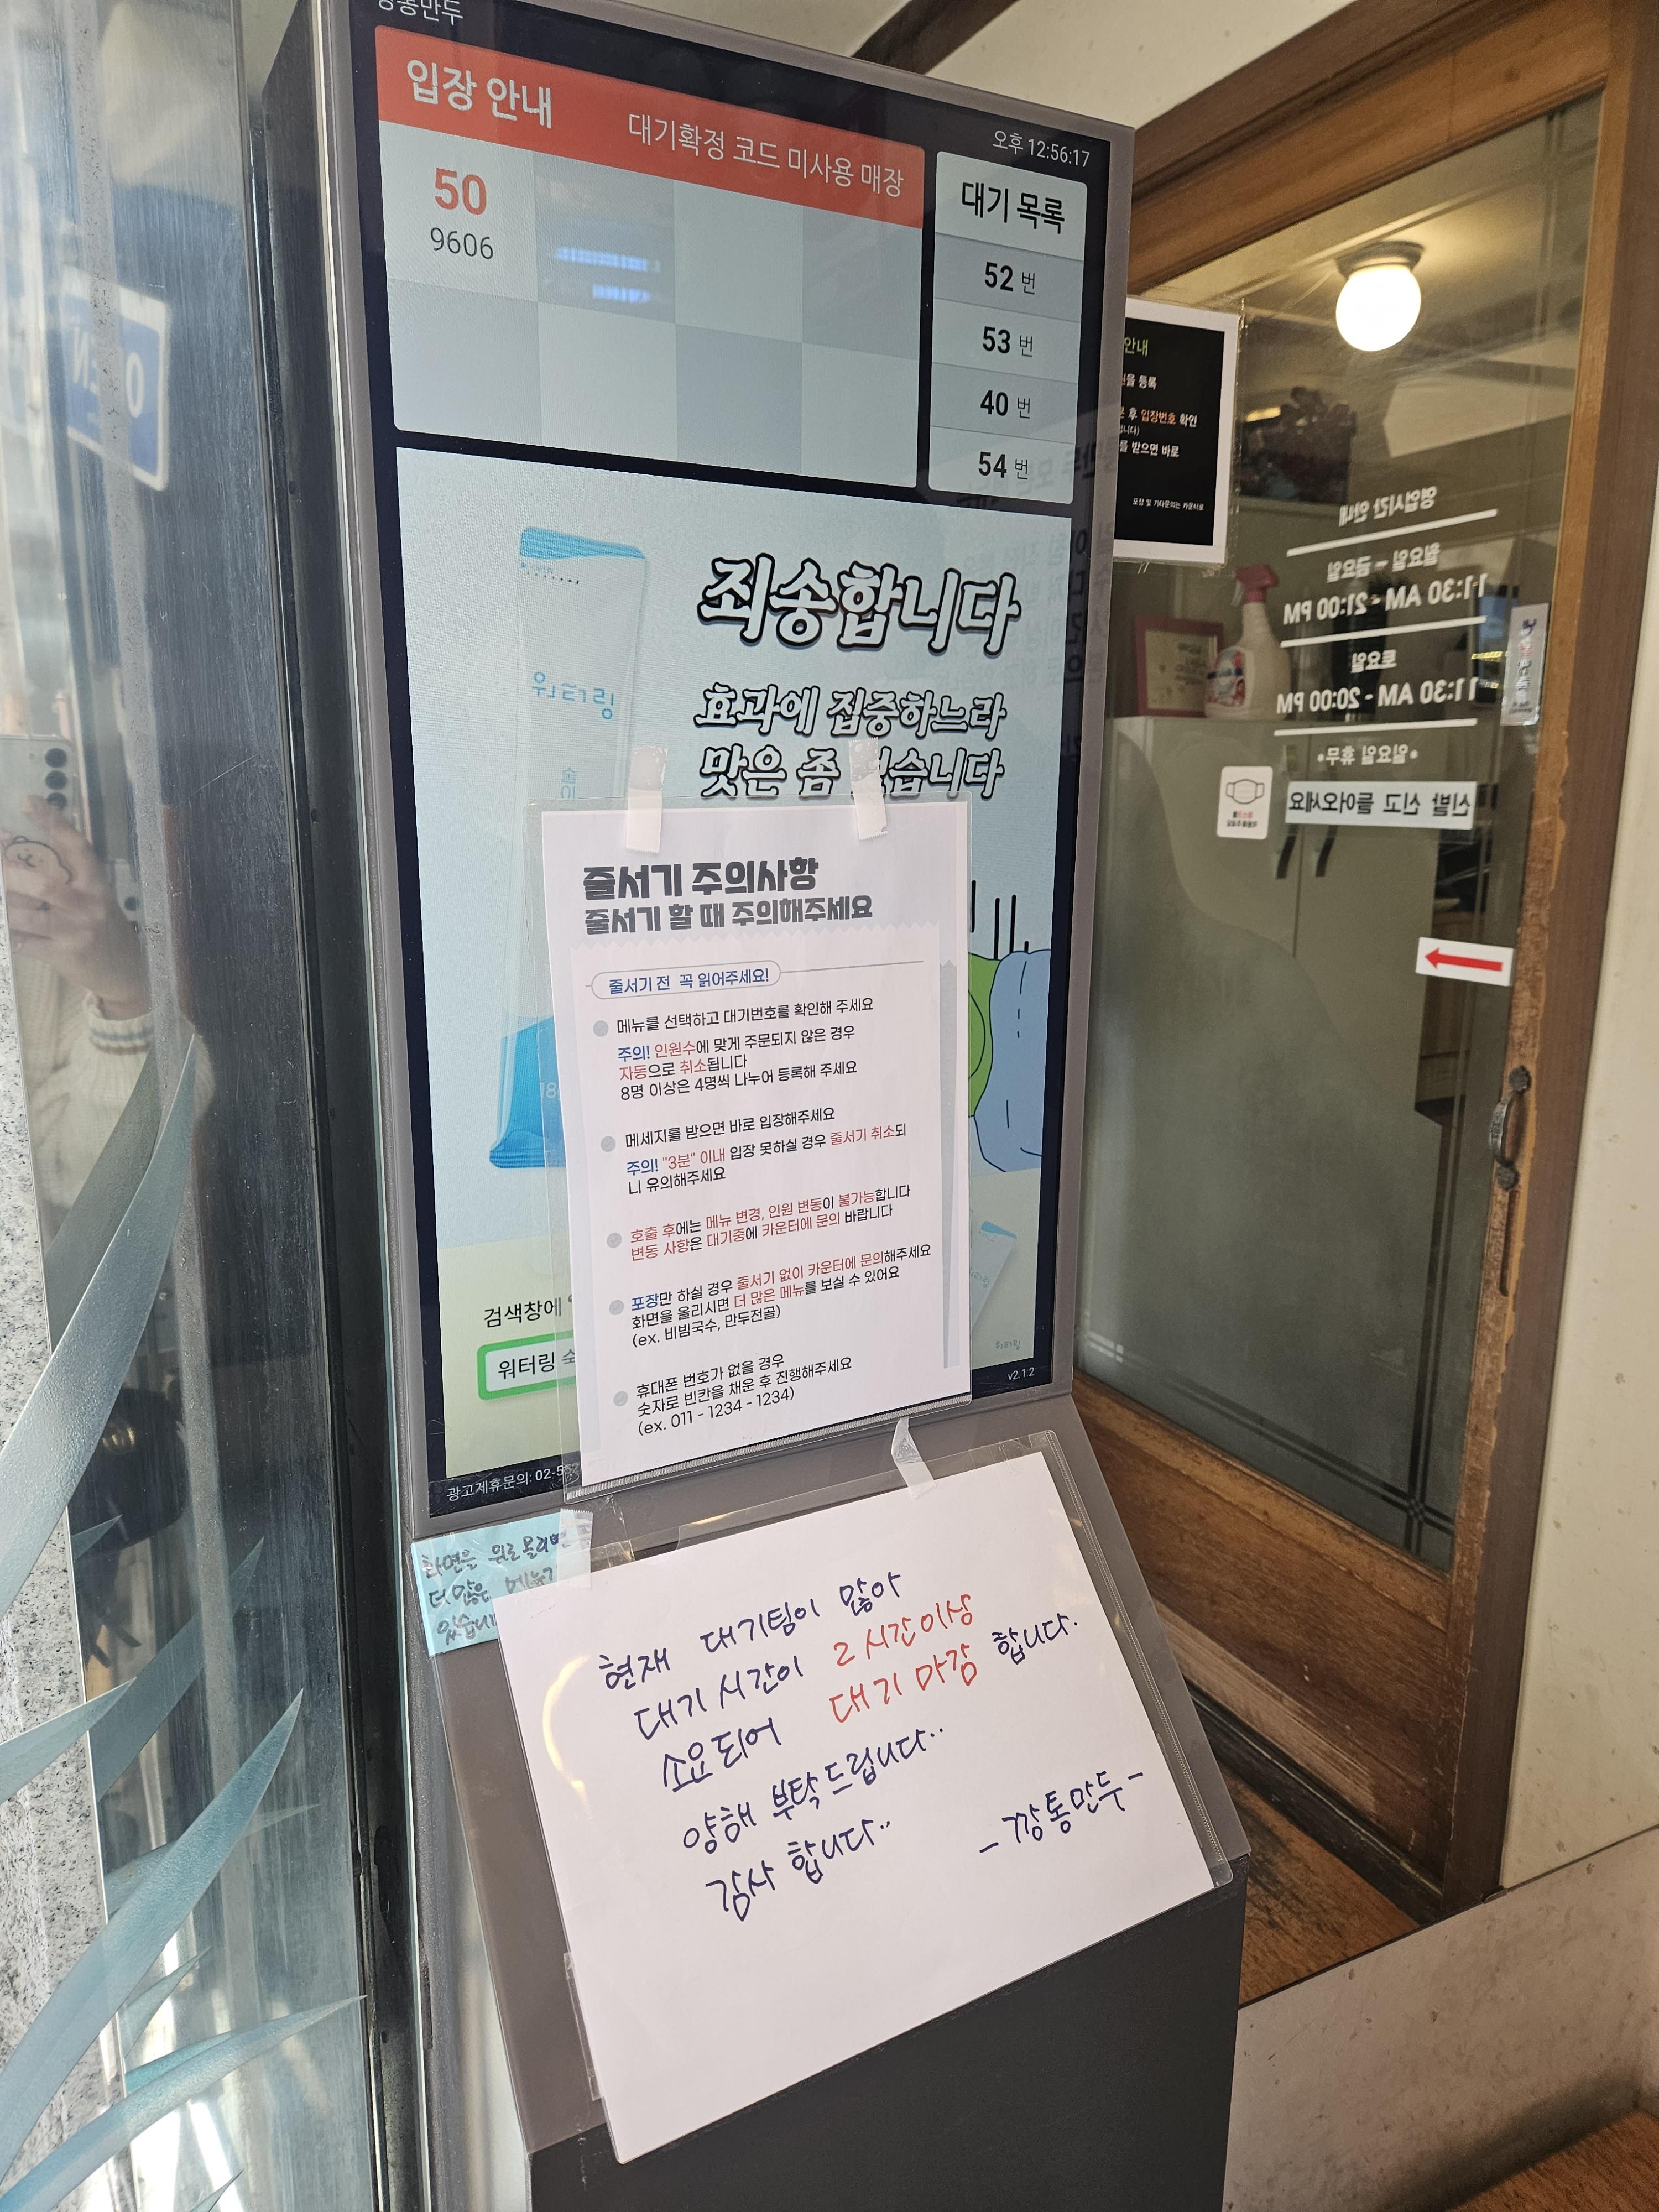 깡통만두
입장 안내
대기확정 코드 미사용 매장
오후 12:56:17
50
9606
대기 목록
52 번
53 번
40 번
54 번
죄송합니다
효과에 집중하느라
맛은 좀
검색창에
워터링
v2.1.2
광고제휴문의: 02-5
줄서기 주의사항
줄서기 할 때 주의해주세요
줄서기 전 꼭 읽어주세요!
메뉴를 선택하고 대기번호를 확인해 주세요
주의! 인원수에 맞게 주문되지 않은 경우
자동으로 취소됩니다
8명 이상은 4명씩 나누어 등록해 주세요
메세지를 받으면 바로 입장해주세요
주의! "3분" 이내 입장 못하실 경우 줄서기 취소되
니 유의해주세요
호출 후에는 메뉴 변경, 인원 변동이 불가능합니다
변동 사항은 대기중에 카운터에 문의 바랍니다
포장만 하실 경우 줄서기 없이 카운터에 문의해주세요
화면을 올리시면 더 많은 메뉴를 보실 수 있어요
(ex. 비빔국수, 만두전골)
휴대폰 번호가 없을 경우
숫자로 빈칸을 채운 후 진행해주세요
(ex. 011 - 1234 - 1234)
화면을 위로 올리면
더 많은 메뉴가
있습니
현재 대기팀이 많아
대기 시간이 2시간이상
소요되어 대기 마감 합니다.
양해 부탁드립니다..
감사 합니다..
- 깡통만두 -
안내
등록
후 입장번호 확인
를 받으면 바로
포장 및 기타문의는 카운터로
영업시간 안내
월요일 - 금요일
11:30 AM - 21:00 PM
토요일
11:30 AM - 20:00 PM
*일요일 휴무*
신발 신고 들어오세요
OPEN